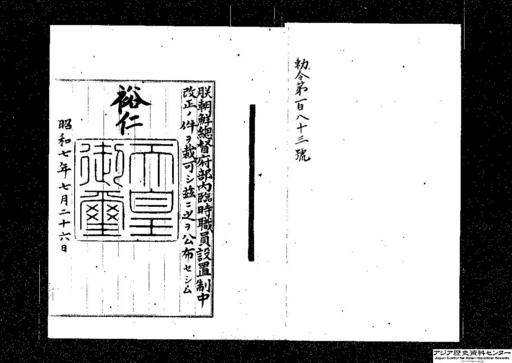 勅令第百八十三號
朕朝鮮總督府部內臨時職員設置制中
改正ノ件ヲ裁可シ茲ニ之ヲ公布セシム
裕仁
天皇
御璽
昭和七年七月二十六日
アジア歴史資料センター
Japan Center for Asian Historical Records